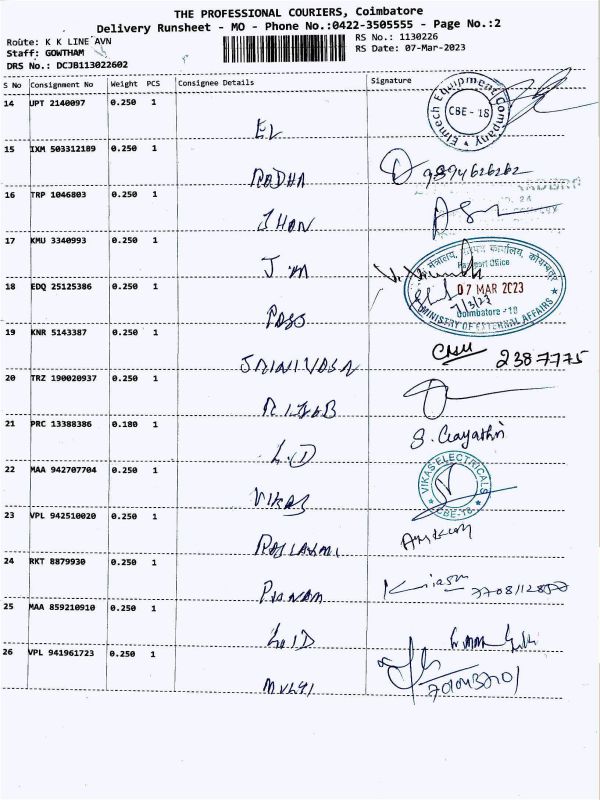 THE PROFESSIONAL COURIERS, Coimbatore
Delivery Runsheet - MO - Phone No.:0422-3505555 - Page No.:2
Route: K K LINE AVN
RS No.: 1130226
Staff: GOWTHAM
RS Date: 07-Mar-2023
DRS No.: DCJB113022602
S No Consignment No Weight PCS Consignee Details Signature
14 UPT 2140097 0.250 1
Elmtech Equipment Company
CBE - 18
EL
15 IXM 503312189 0.250 1
RADHA
16 TRP 1046803 0.250 1
JHON
17 KMU 3340993 0.250 1
JM
Passport Office
07 MAR 2023
7/3/23
Coimbatore - 18
MINISTRY OF EXTERNAL AFFAIRS
18 EDQ 25125386 0.250 1
PASS
19 KNR 5143387 0.250 1
2387775
SRINIVASA
20 TRZ 190020937 0.250 1
21 PRC 13388386 0.180 1
S. Gayathri
L.D
22 MAA 942707704 0.250 1
VIKAS ELECTRICALS
CBE-18
VIKAS
23 VPL 942510020 0.250 1
RAJLAXMI
24 RKT 8879930 0.250 1
25 MAA 859210910 0.250 1
26 VPL 941961723 0.250 1